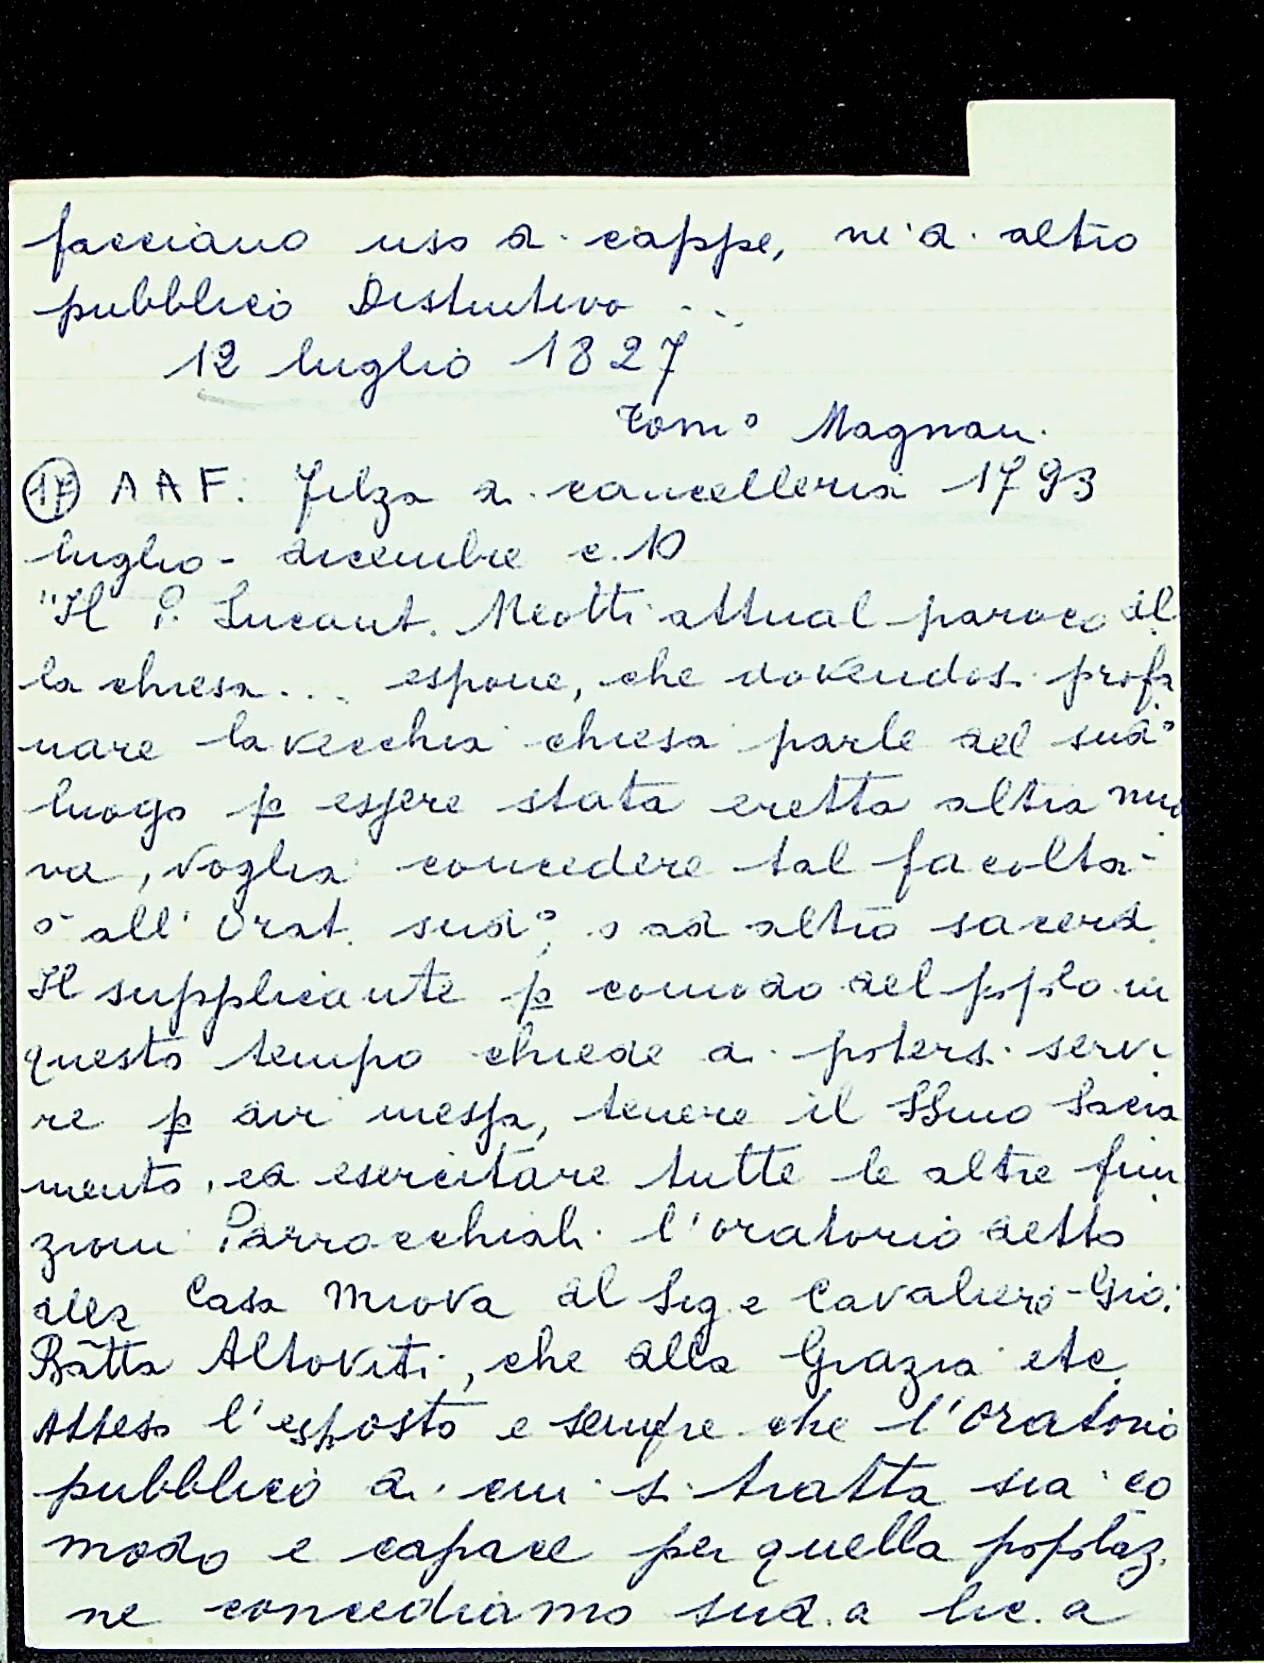 facciano uso di cappe, ne di altro
pubblico Distintivo ...
12 luglio 1827
Tom° Magnani.
17 A A F. Filza di cancelleria 1793
luglio - dicembre c. 10
"Il P. Lucant. Meotti attual paroco del
la chiesa ... espone, che dovendosi profa
nare la vecchia chiesa parle del sud°
luogo p essere stata eretta altra nuo
va, voglia concedere tal facoltà
ò all' Orat. sud°, o ad altro sacerd.
Il supplicante p comodo del popolo in
questo tempo chiede di potersi servi
re p dir messa, tenere il SSmo Sacra
mento, ed esercitare tutte le altre fun
zioni Parrocchiali l'oratorio detto
della Casa Nuova del Sig.e Cavaliere Gio:
Batta Altoviti, che della Grazia etc.
Atteso l'esposto e sempre che l'oratorio
pubblico di cui si tratta sia co
modo e capace per quella popolaz.
ne concediamo sud.a lic.a